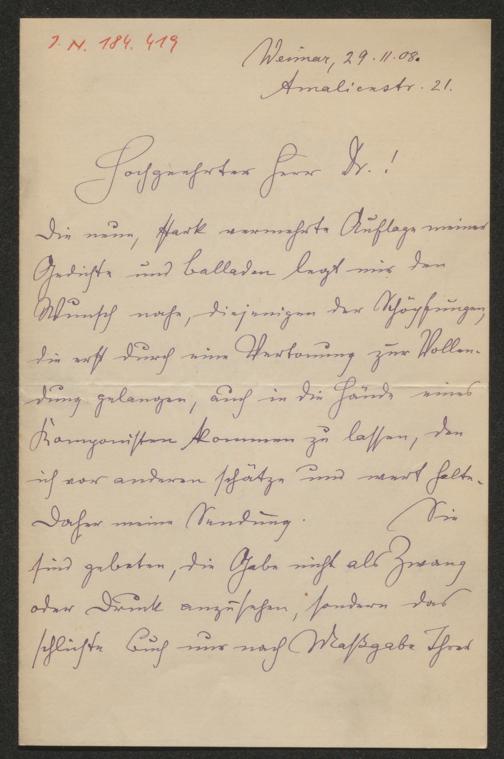 J. N. 184.419
Weimar, 29.11.08.
Amalienstr. 21.
Hochgeehrter Herr Dr.!
Die neue, stark vermehrte Auflage meiner
Gedichte und Balladen legt mir den
Wunsch nahe, diejenigen der Schöpfungen,
die erst durch eine Vertonung zur Vollen-
dung gelangen, auch in die Hände eines
Komponisten kommen zu lassen, den
ich vor anderen schätze und wert halte.
Daher meine Sendung. Sie
sind gebeten, die Gabe nicht als Zwang
oder Druck anzusehen, sondern das
schlichte Buch nur nach Maßgabe Ihres